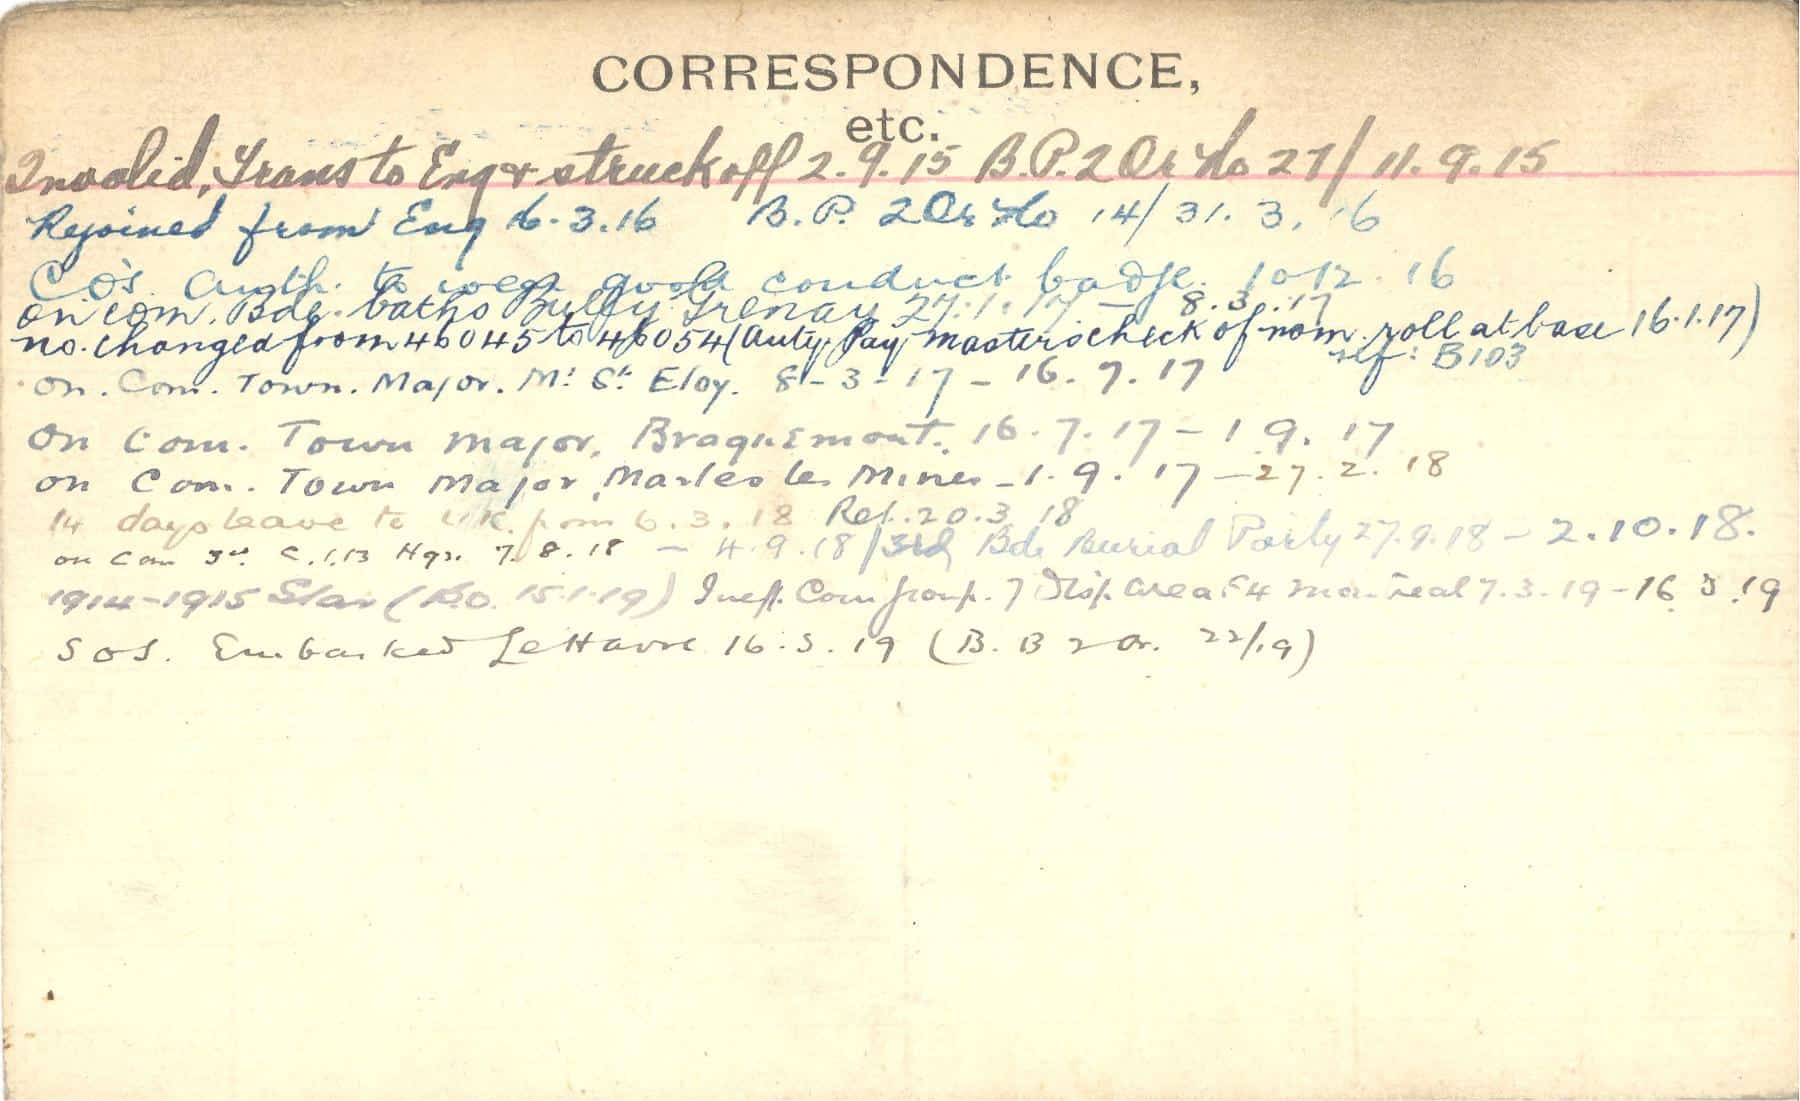 CORRESPONDENCE,
etc.
Invalid, Trans to Eng & struck off 2.9.15 B.P.2 Or No 27/ 11.9.15
Rejoined from Eng 16.3.16 B.P. 2 Or No 14/ 31.3.16
CO's Auth. to wear good conduct badge. 10 12.16
on com. Bde. baths Bully Grenay 27.1.17 - 8.3.17
no. changed from 46045 to 46054 (Auty Paymasters check of nom. roll at base 16.1.17)
ref: B103
on. Com. Town. Major. Mt St Eloy. 8-3-17 - 16.7.17
On Com. Town Major, Braquemont. 16.7.17 - 1 9.17
on Com. Town Major, Marles les Mines - 1.9.17 - 27.2.18
14 days leave to U.K. from 6.3.18 Ret. 20.3 18
on Com 3rd C.I.B Hqrs. 7.8.18 - 4.9.18 / 3rd Bde Burial Party 27.9.18 - 2.10.18.
1914-1915 Star (R.O. 15.1.19) Ineff. Com group. 7 Disp. Area F4 Montreal 7.3.19 - 16 3.19
SOS. Embarked Le Havre 16.3.19 (B. B 2 Or. 22/19)